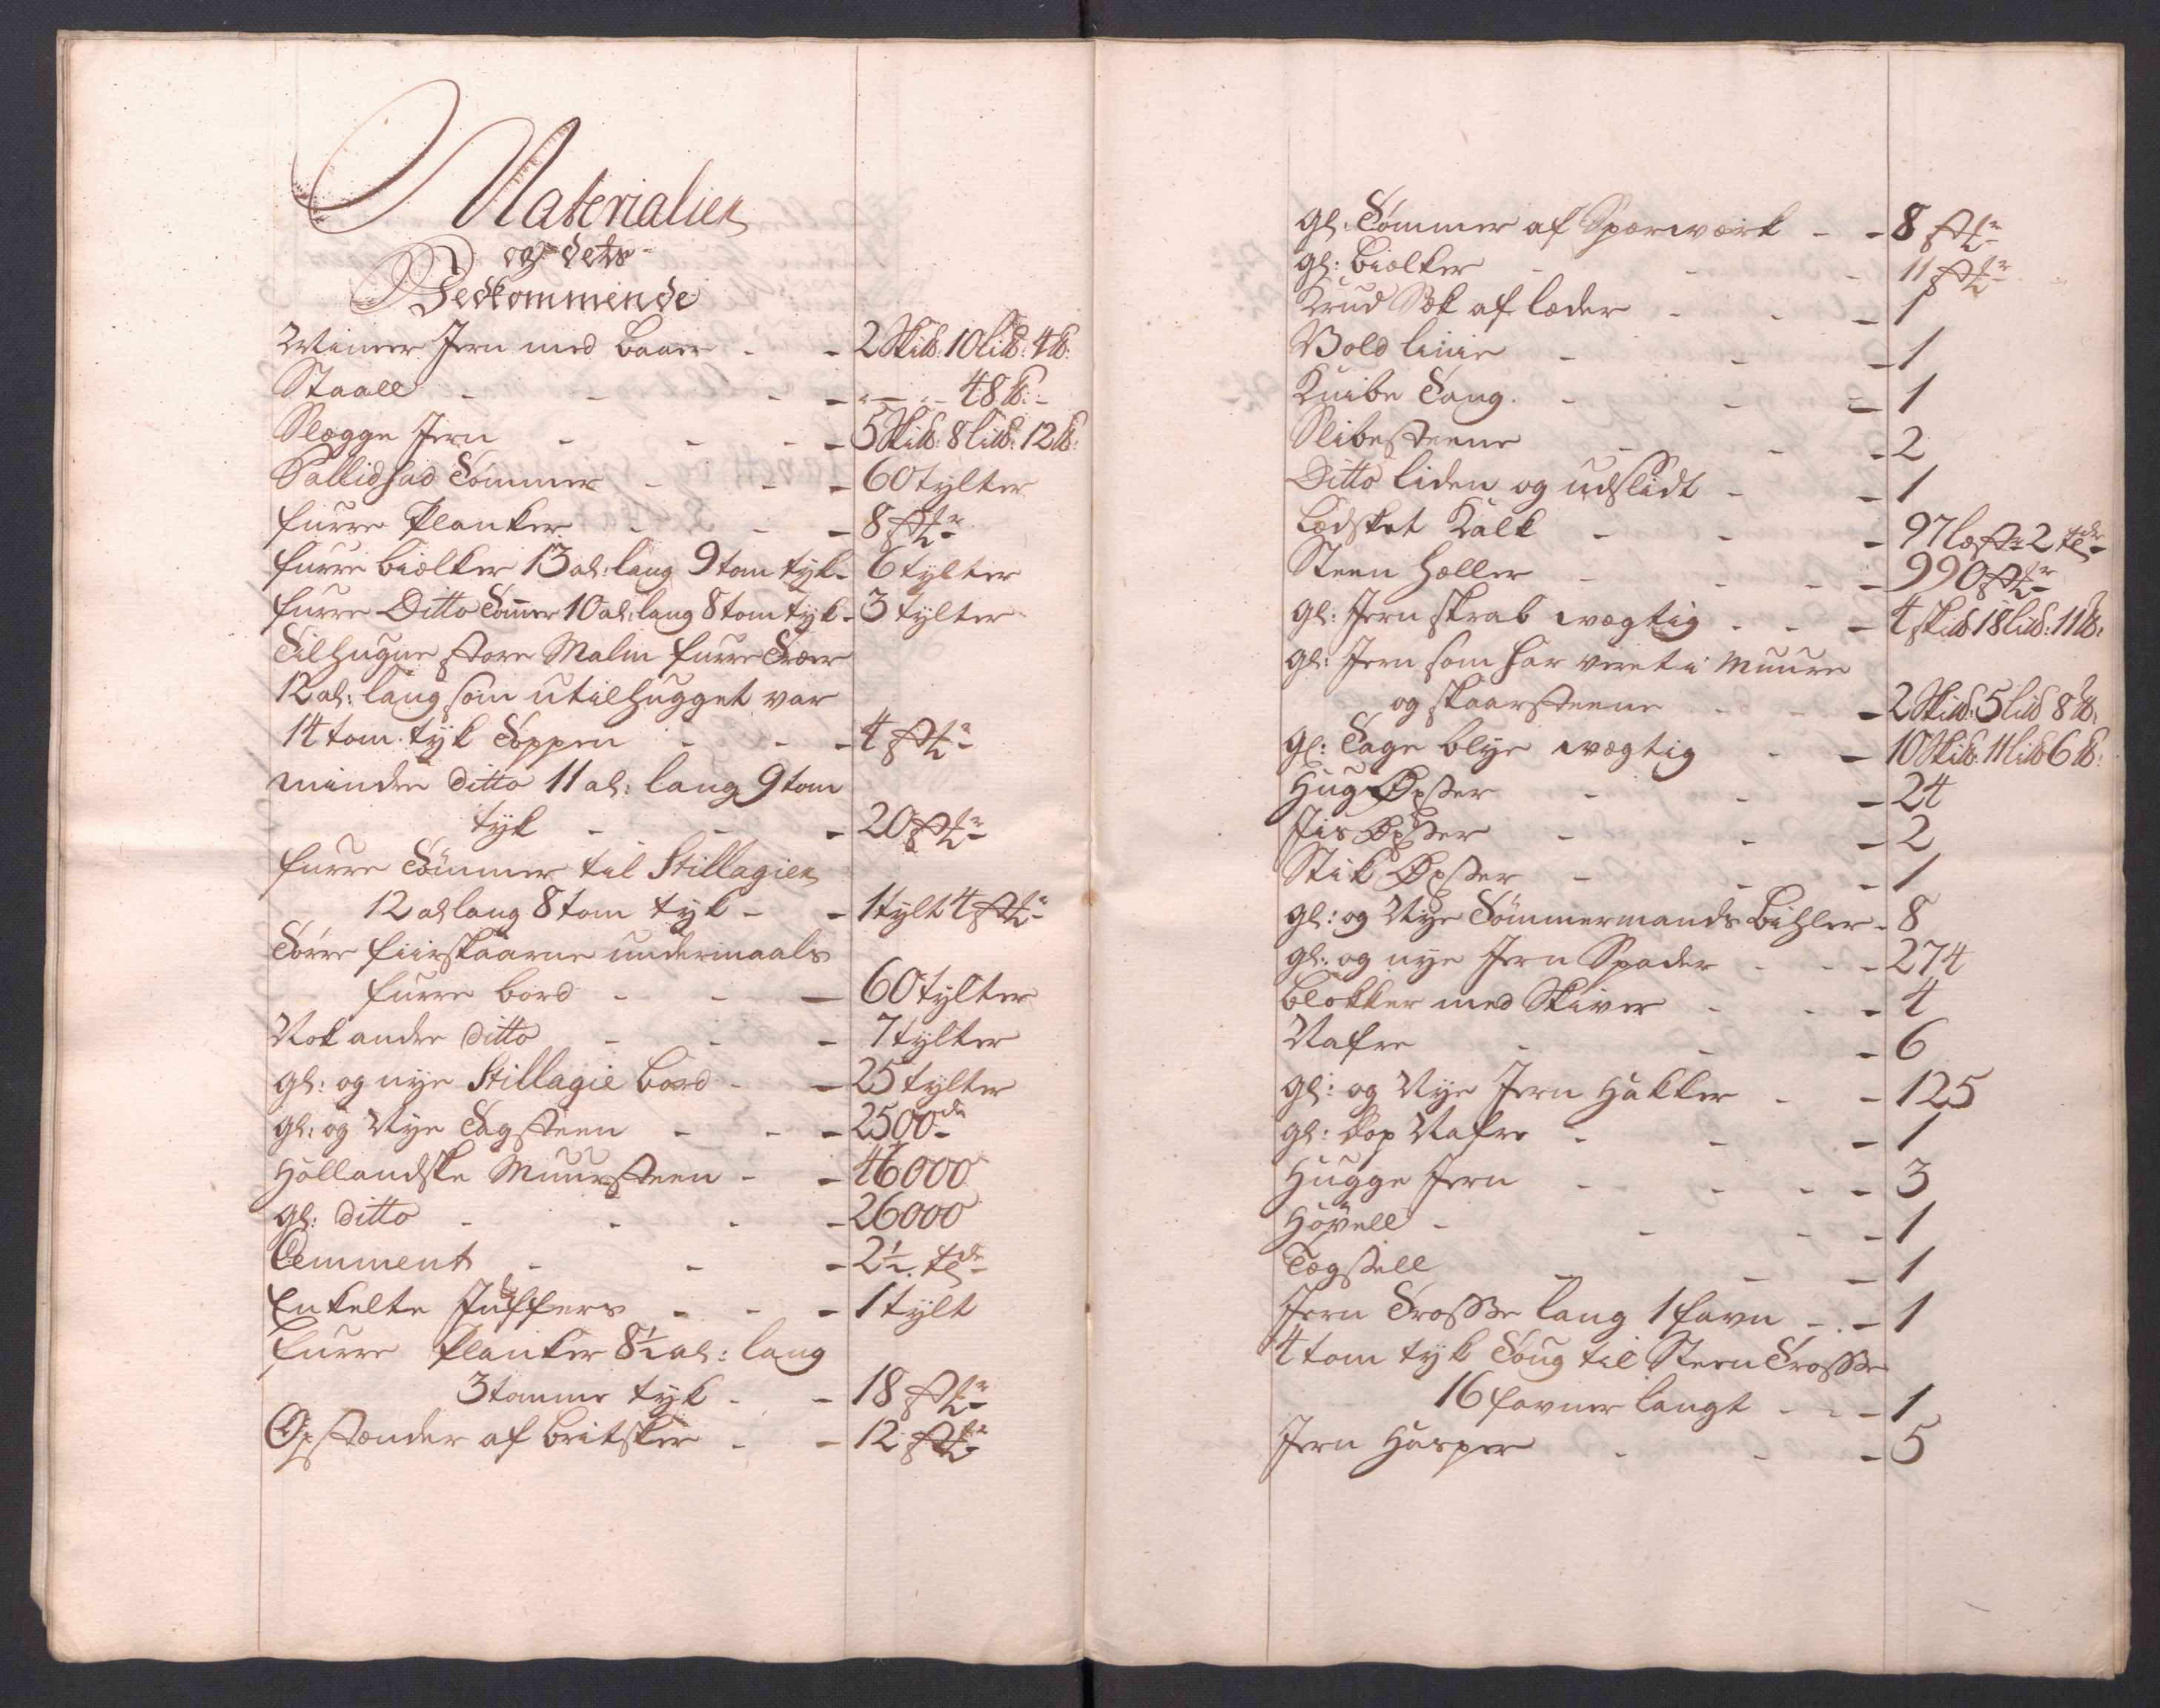 Materialier
og dets
Vedkommende
Winer Jern med baaer - - 2 Skilb: 10 lilb: 4 lb:
Staall - - - - 48 lb: -
Slegge Jern - - - 5 Skilb: 8 lilb: 12 lb:
Pallidsad Tømmer - - - 60 tylter
furre Planker - - - 8 Stkr
furre bielker 13 al: lang 9 tom tyk - 6 tylter
furre Ditto Tømer 10 al: lang 8 tom tyk - 3 tylter
Tilhugne store Malm furre Træer
12 al: lang som utilhugget var
14 tom tyk Toppen - - - 4 Stkr
mindre ditto 11 al: lang 9 tom
tyk - - - 20 Stkr
furre Tømmer til Stillagier
12 al lang 8 tom tyk - - 1 tylt 4 Stkr
Tørre fiirskaarne undermaals
furre bord - - - 60 tylter
Nok andre ditto - - - 7 tylter
gl: og nye Stillagie bord - - 25 tylter
gl: og Nye Tagsteen - - - 2500de
Hollandske Muursteen - - 46000
gl: ditto - - - - 26000
Cemment - - - 2½ tdr
Enkelte Juffers - - - 1 tylt
furre Planker 8½ al: lang
3 tomme tyk - - 18 Stkr
Opstander af britsker - - 12 Stkr
gl: Tømmer af Sperwerk - - 8 Stkr
gl: bielker - - - 11 Stkr
Krud Sek af læder - - - 1
Vold linie - - - 1
Knibe Tang - - - 1
Slibesteene - - - 2
Ditto liden og udslidt - - 1
Ledsket Kalk - - - 97 lester 2 tdr
Steen Heller - - - 990 Stkr
gl: Jern skrab wegtig - - - 4 skilb 18 lilb: 11 lb:
gl: Jern som har veret i Muure
og skaarsteene - - - 2 Skilb: 5 lilb 8 lb:
gl: Tage blye wegtig - - 10 Skilb: 11 lilb 6 lb:
Hug Øxser - - - 24
Jis Øxser - - - 2
Stik Øxser - - - 1
gl: og Nye Tømmermands Bihler - 8
gl: og nye Jern Spader - - - 274
blokker med Skiver - - - 4
Nafre - - - 6
gl: og Nye Jern Hakker - - 125
gl: Nafre - - - 1
Hugge Jern - - - - 3
Høvell - - - - 1
- - - 1
Jern Trosse lang 1 favn - - 1
4 tom tyk Toug til Steen Trosse
16 favner langt - - - 1
Jern Hasper - - - 5